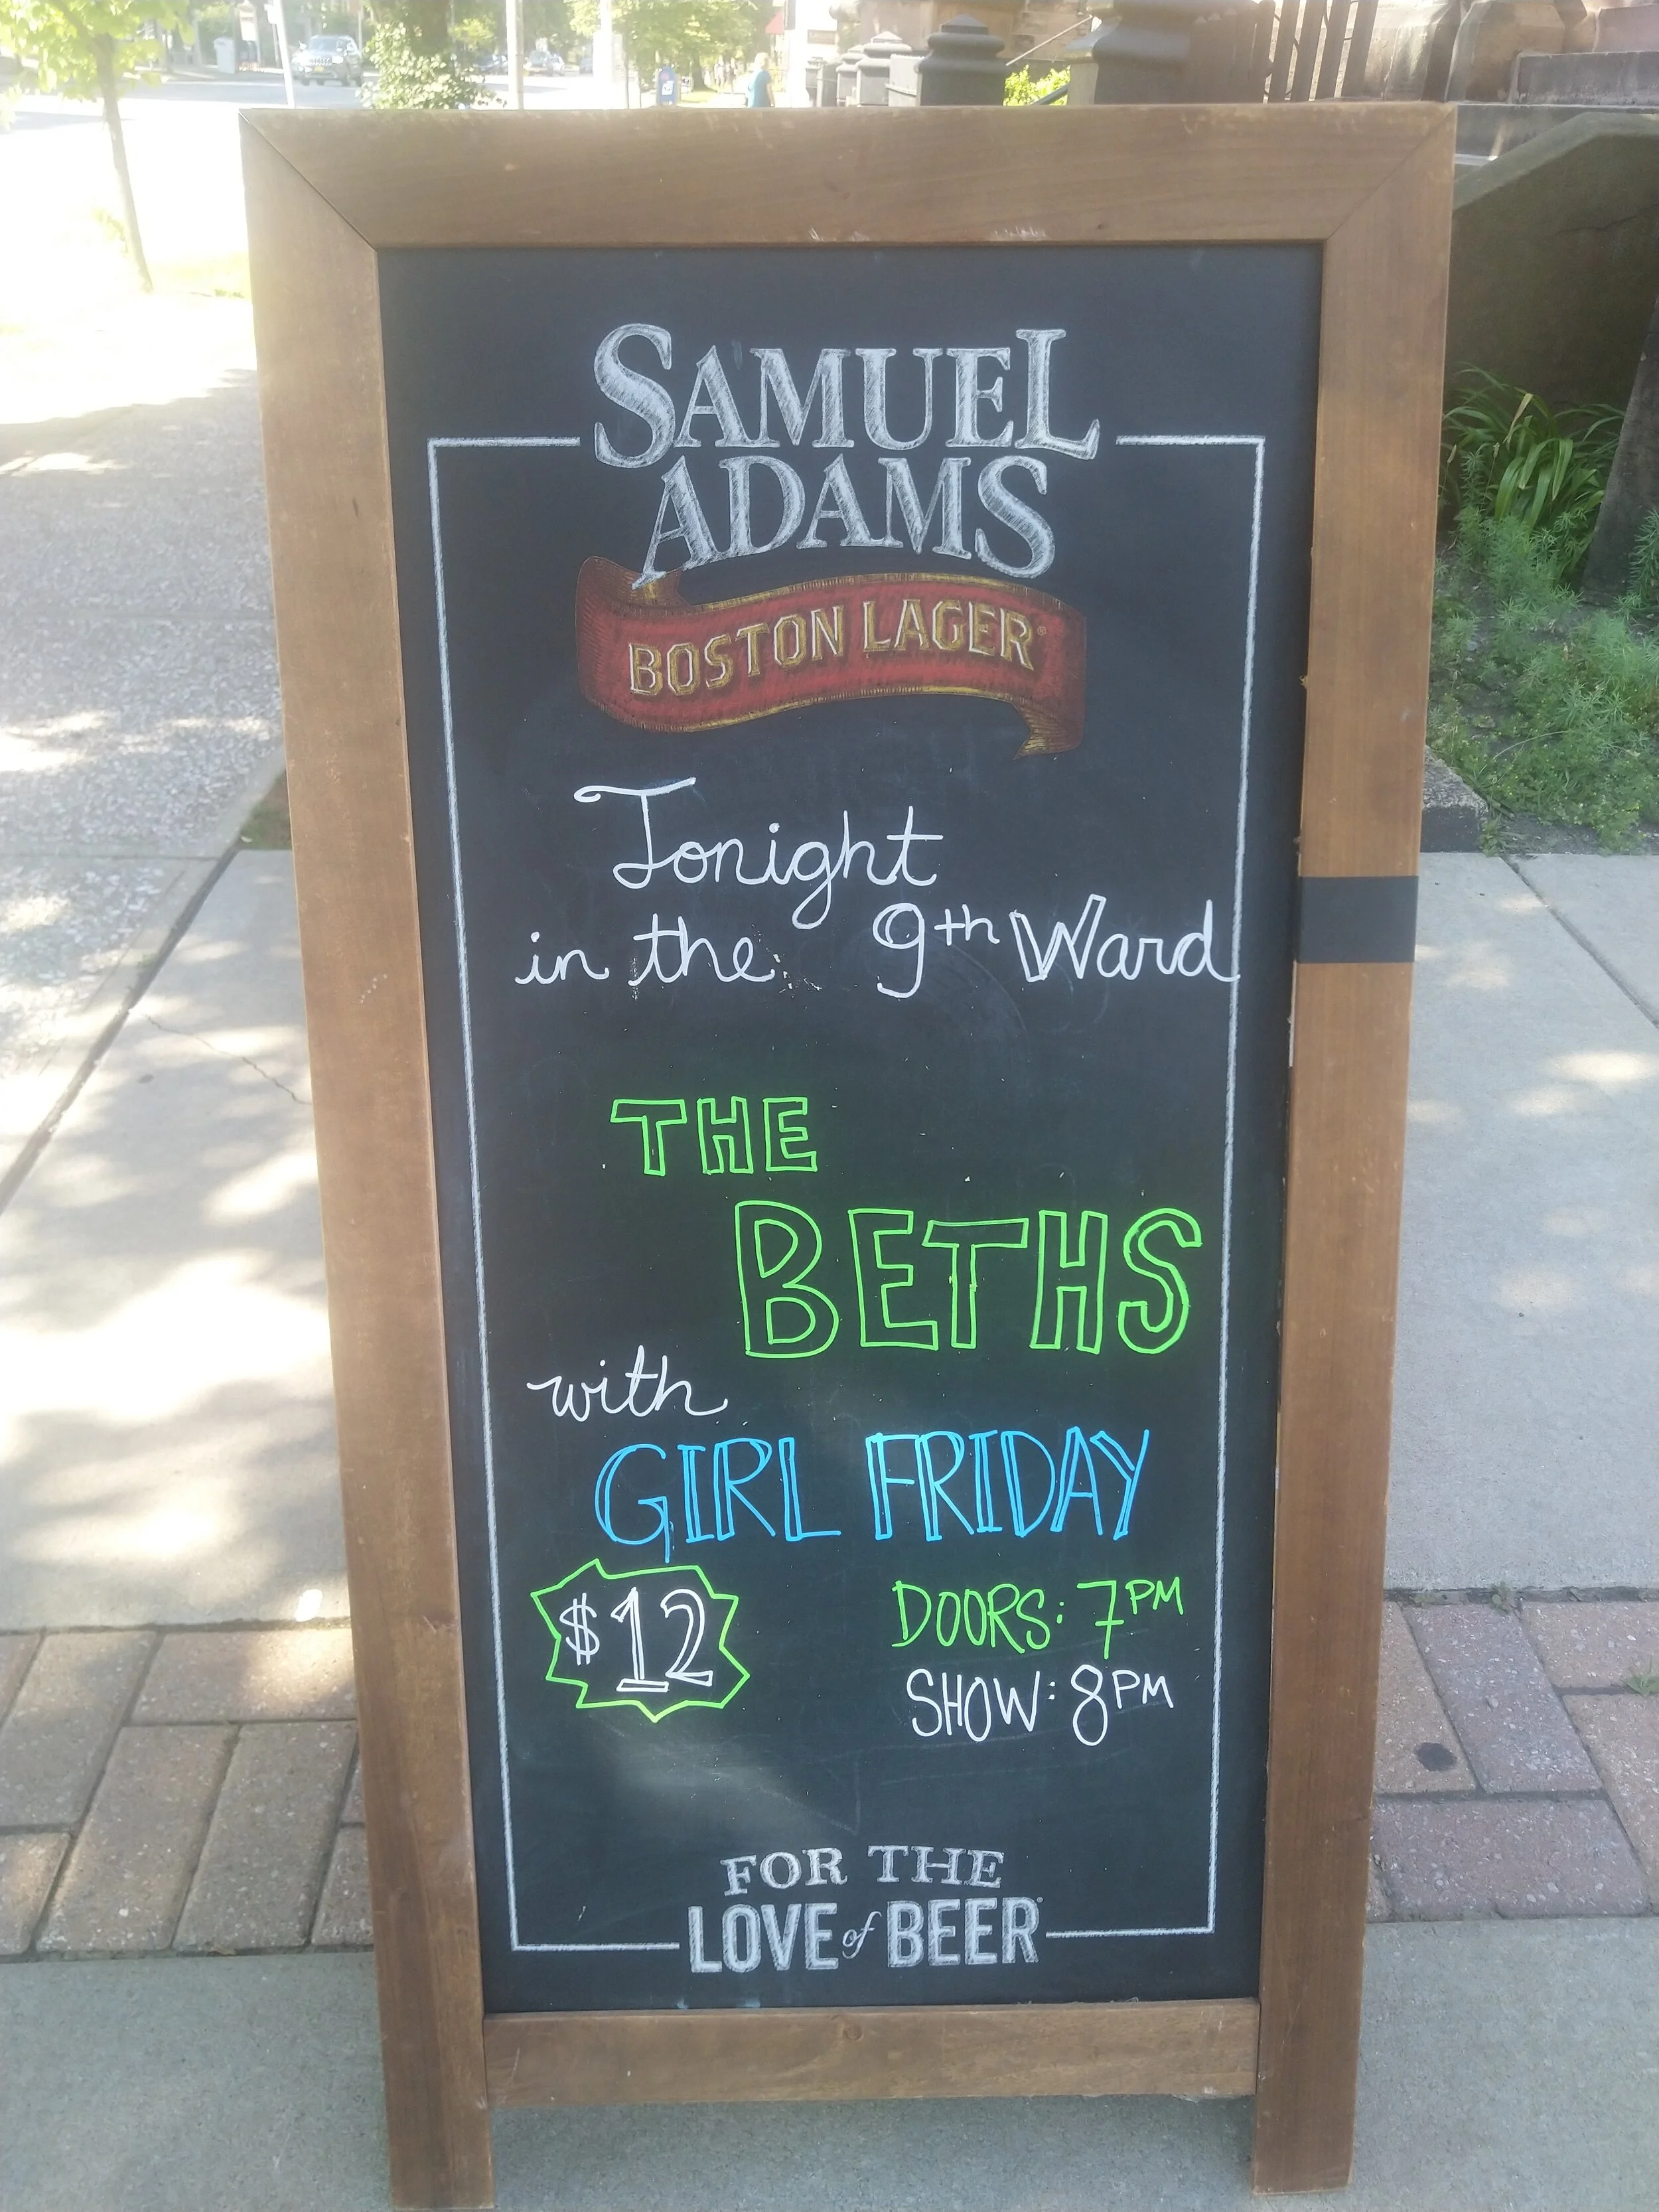 SAMUEL
ADAMS
BOSTON LAGER®
Tonight
in the 9th Ward
THE
BETHS
with
GIRL FRIDAY
$12
DOORS: 7PM
SHOW: 8PM
FOR THE
LOVE of BEER®